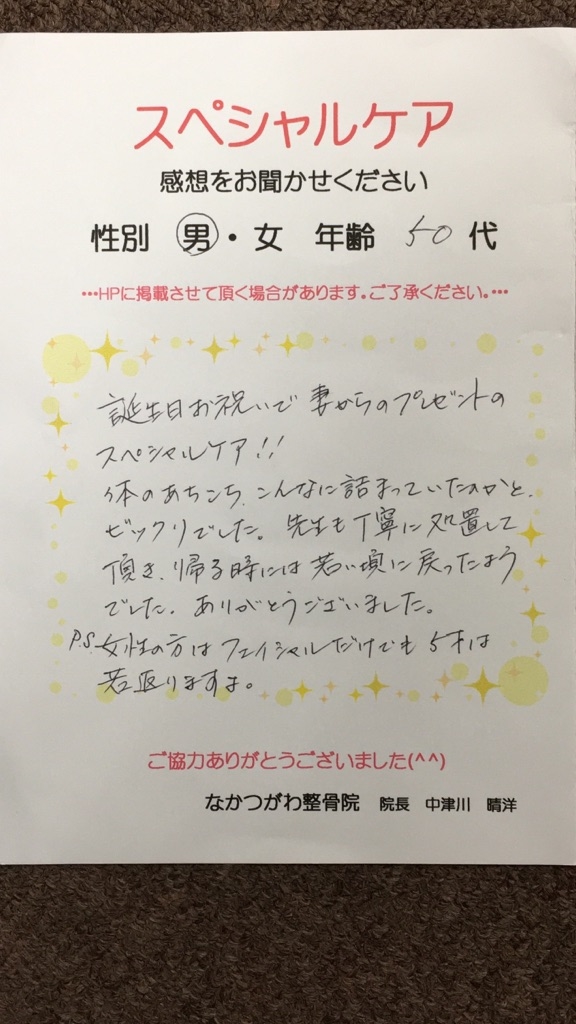 スペシャルケア
感想をお聞かせください
性別 男・女 年齢 50 代
…HPに掲載させて頂く場合があります。ご了承ください。…
誕生日お祝いで 妻からのプレゼントの
スペシャルケア!!
体のあちこち、こんなに詰まっていたのかと、
ビックリでした。先生も丁寧に処置して
頂き、帰る時には若い頃に戻ったよう
でした。ありがとうございました。
P.S. 女性の方はフェイシャルだけでも 5才は
若返りますよ。
ご協力ありがとうございました(^^)
なかつがわ整骨院 院長 中津川 晴洋